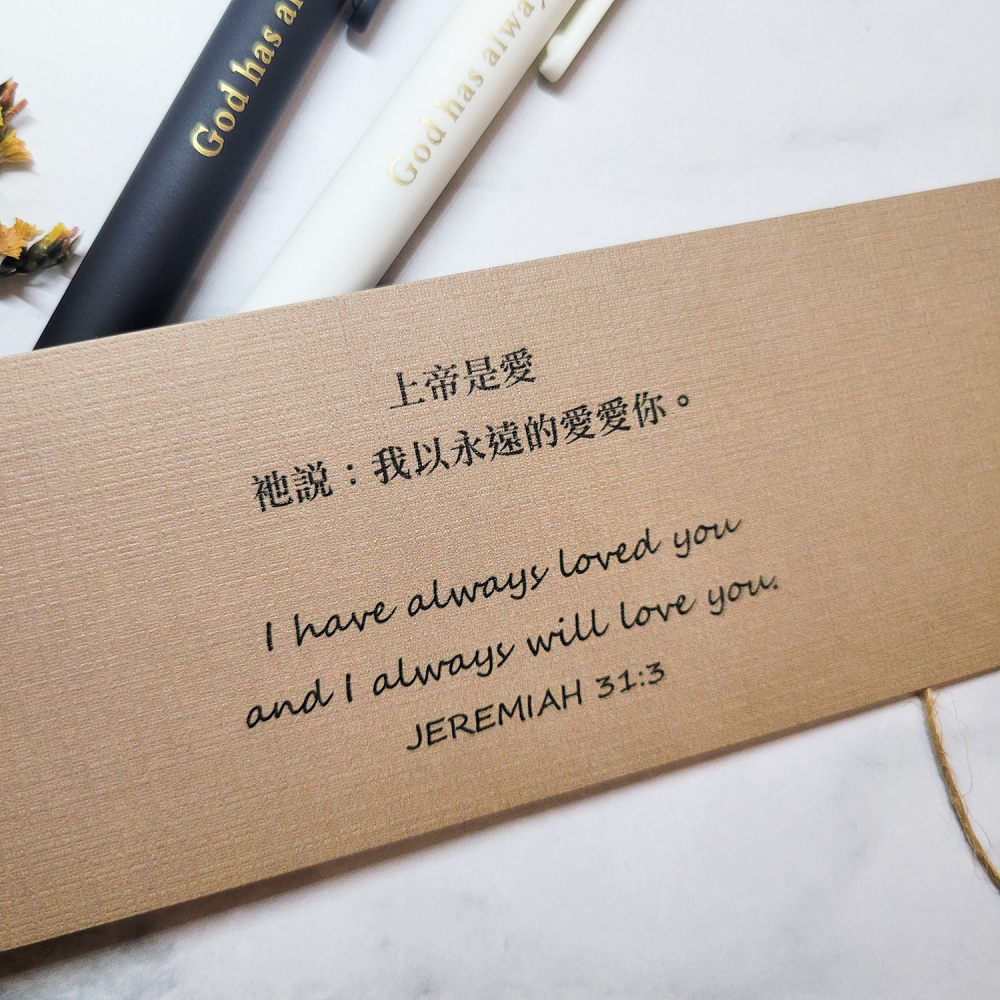 God has al
God has alway
上帝是愛
祂説：我以永遠的愛愛你。
I have always loved you
and I always will love you.
JEREMIAH 31:3